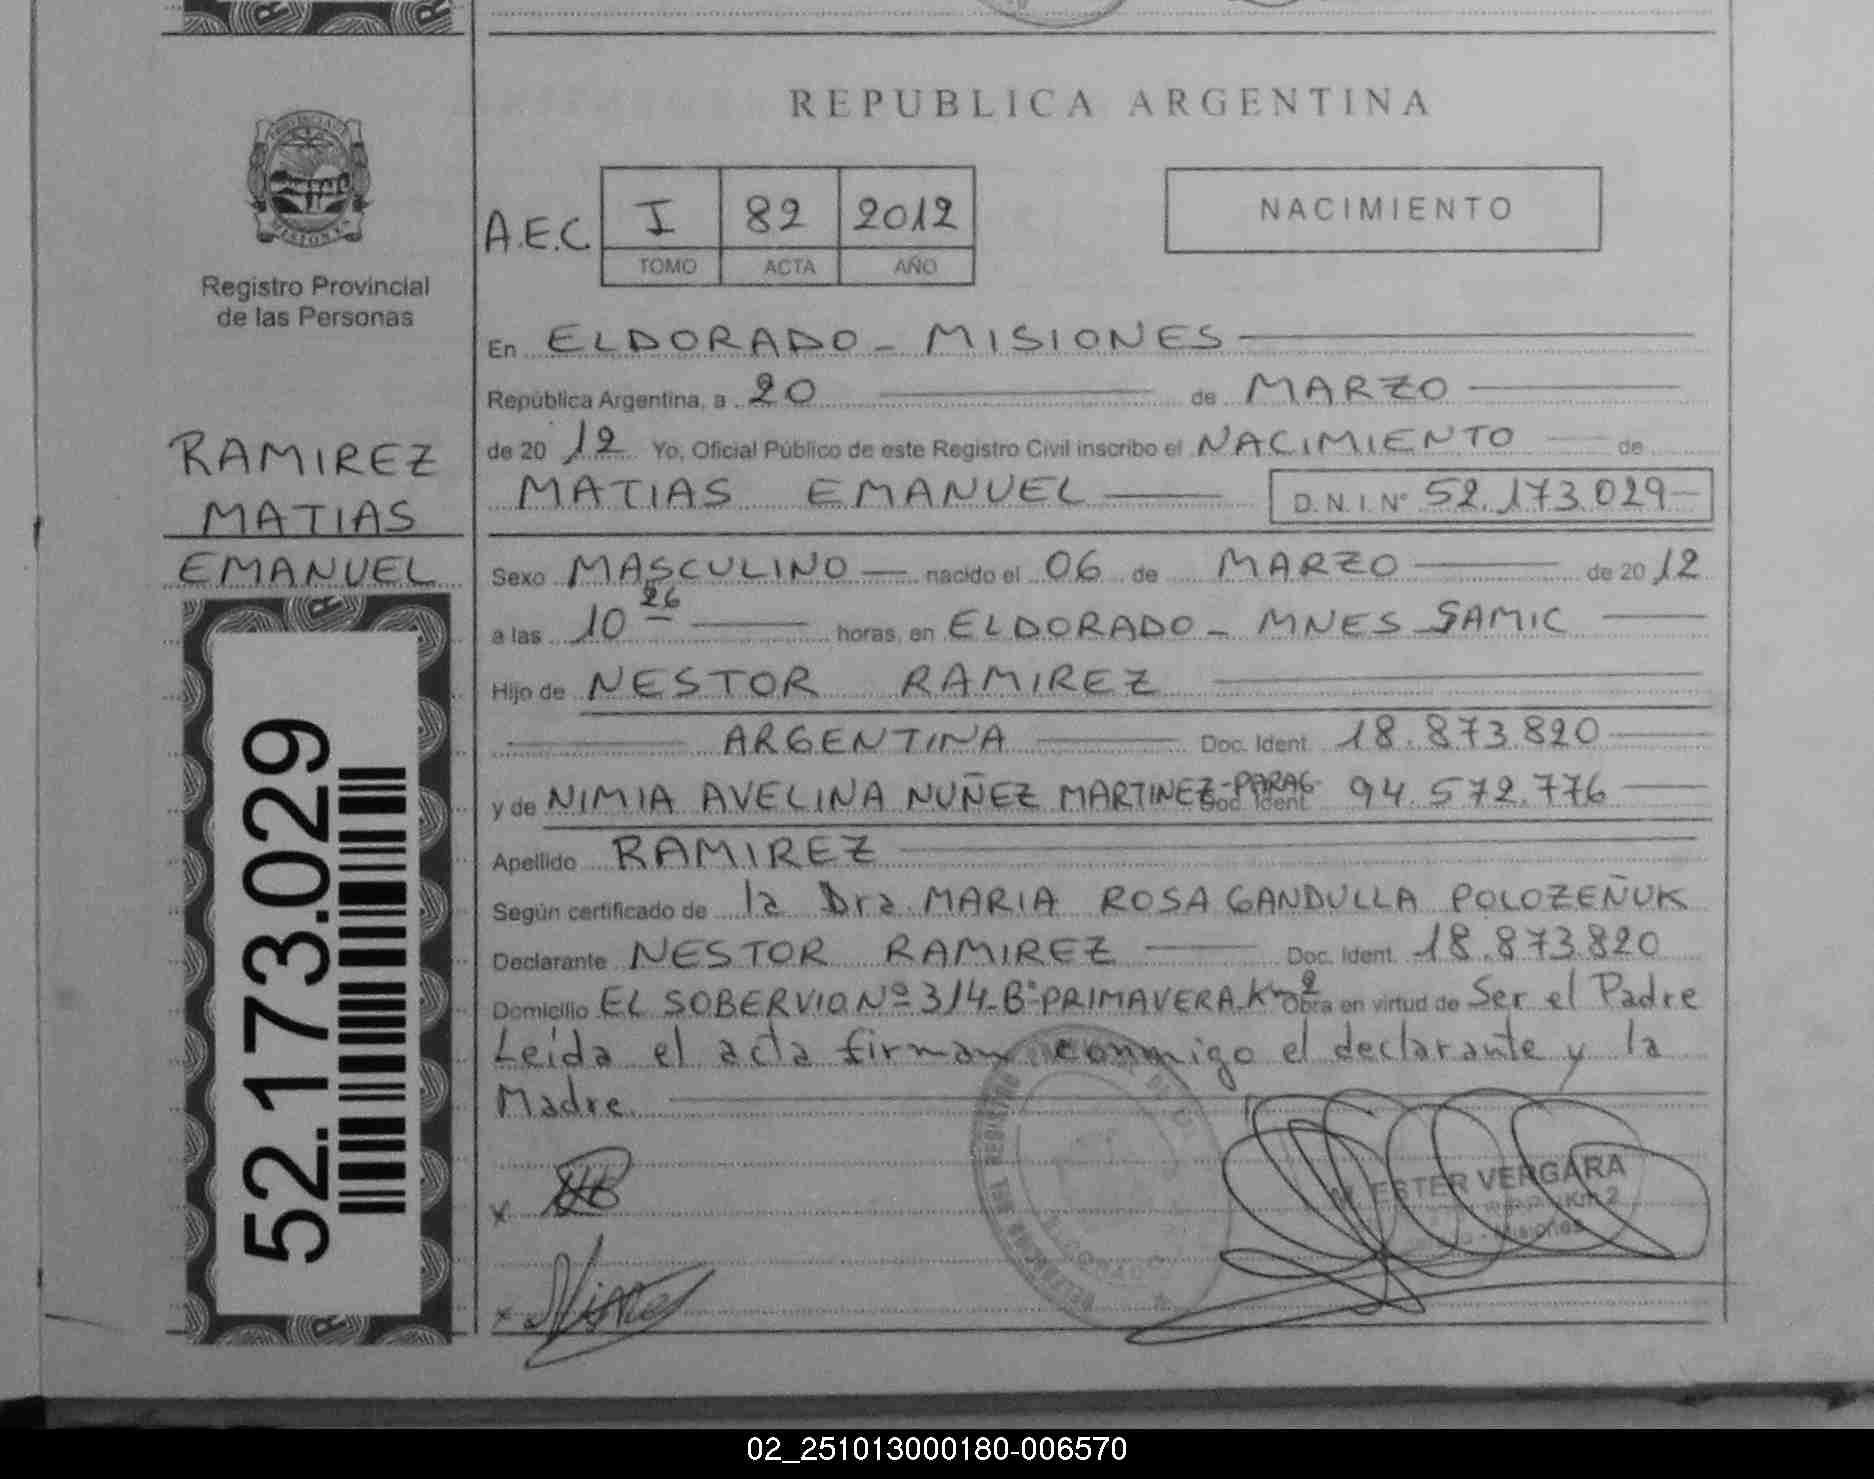 REPUBLICA ARGENTINA
Registro Provincial
de las Personas
A.E.C. I 82 2012
TOMO ACTA AÑO
NACIMIENTO
RAMIREZ
MATIAS
EMANUEL
52.173.029
En ELDORADO - MISIONES
República Argentina, a 20 de MARZO
de 20 12 Yo, Oficial Público de este Registro Civil inscribo el NACIMIENTO de
MATIAS EMANUEL D.N.I. Nº 52.173.029
Sexo MASCULINO nacido el 06 de MARZO de 2012
a las 10 26 horas, en ELDORADO - MNES SAMIC
Hijo de NESTOR RAMIREZ
ARGENTINA Doc. Ident. 18.873.820
y de NIMIA AVELINA NUÑEZ MARTINEZ-PARAG- Doc. Ident. 94.572.776
Apellido RAMIREZ
Según certificado de la Dra MARIA ROSA GANDULLA POLOZEÑUK
Declarante NESTOR RAMIREZ Doc. Ident. 18.873820
Domicilio EL SOBERVIO Nº 314-Bº PRIMAVERA-Km 2 Obra en virtud de Ser el Padre
Leída el acta firman conmigo el declarante y la
Madre.
REGISTRO
ELDORADO
M. ESTER VERGARA
Km 2
Misiones
02_251013000180-006570